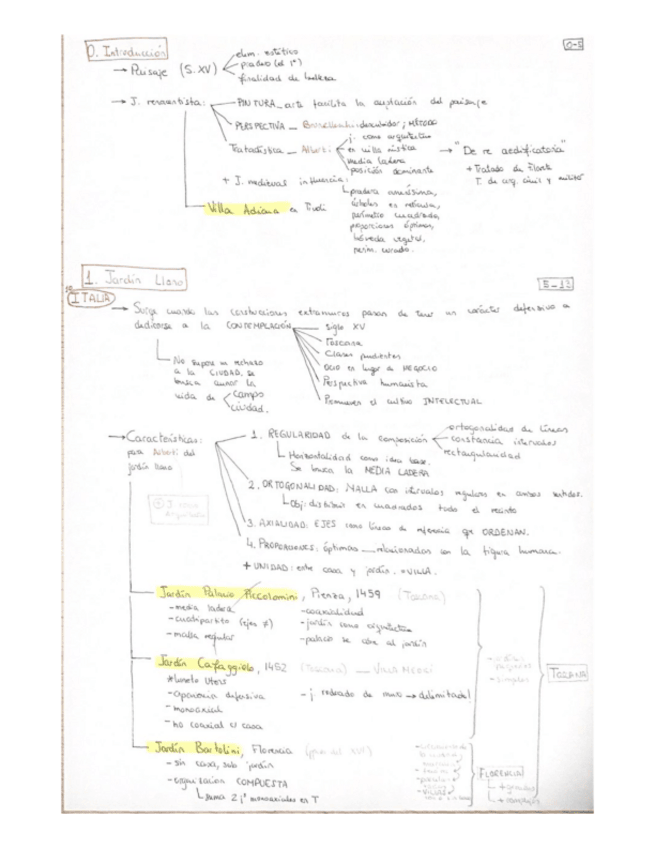 0. Introducción
→ Paisaje (S. XV)
elem. estético
finalidad de belleza
→ J. renacentista:
PINTURA_ arte facilita la captación del paisaje
PERSPECTIVA _ Brunelleschi descubridor; MÉTODO
Tratadística _ Alberti
j. como arquitectura
en villa rústica
media ladera
posición dominante
→ "De re aedificatoria"
+ Tratado de
T. de arq. civil y militar
+ J. medieval influencia:
pradera amenísima,
árboles en retícula,
perímetro cuadrado,
proporciones óptimas,
bóveda vegetal,
perím. cerrado.
Villa Adriana en Tívoli
1. Jardín Llano
ITALIA
→ Surge cuando las construcciones extramuros pasan de tener un carácter defensivo a
dedicarse a la CONTEMPLACIÓN
siglo XV
Toscana
Clases pudientes
OCIO en lugar de NEGOCIO
Perspectiva humanista
Promueven el cultivo INTELECTUAL
No supone un rechazo
a la CIUDAD, se
busca aunar la
vida de
campo
ciudad.
→ Características:
para Alberti del
jardín llano
1. REGULARIDAD de la composición
ortogonalidad de líneas
constancia intervalos
rectangularidad
Horizontalidad como idea base.
Se busca la MEDIA LADERA
2. ORTOGONALIDAD: MALLA con intervalos regulares en ambos sentidos.
Obj: distribuir en cuadrados todo el recinto
3. AXIALIDAD: EJES como líneas de referencia que ORDENAN.
4. PROPORCIONES: óptimas _ relacionadas con la figura humana.
+ UNIDAD: entre casa y jardín. =VILLA.
Jardín Palacio Piccolomini, Pienza, 1459 (Toscana)
- media ladera
- cuadripartito (ejes ≠)
- malla regular
- coaxialidad
- jardín como arquitectura
- palacio se abre al jardín
Jardín Cafaggiolo, 1452 (Toscana) _ Villa Medici
- apariencia defensiva
- monoaxial
- no coaxial c/ casa
- j. rodeado de muro → delimitada!
- simples
TOSCANA
Jardín Bartolini, Florencia
- sin casa, solo jardín
- organización COMPUESTA
suma 2 jº monoaxiales en T
FLORENCIA
+ grandes
+ complejos